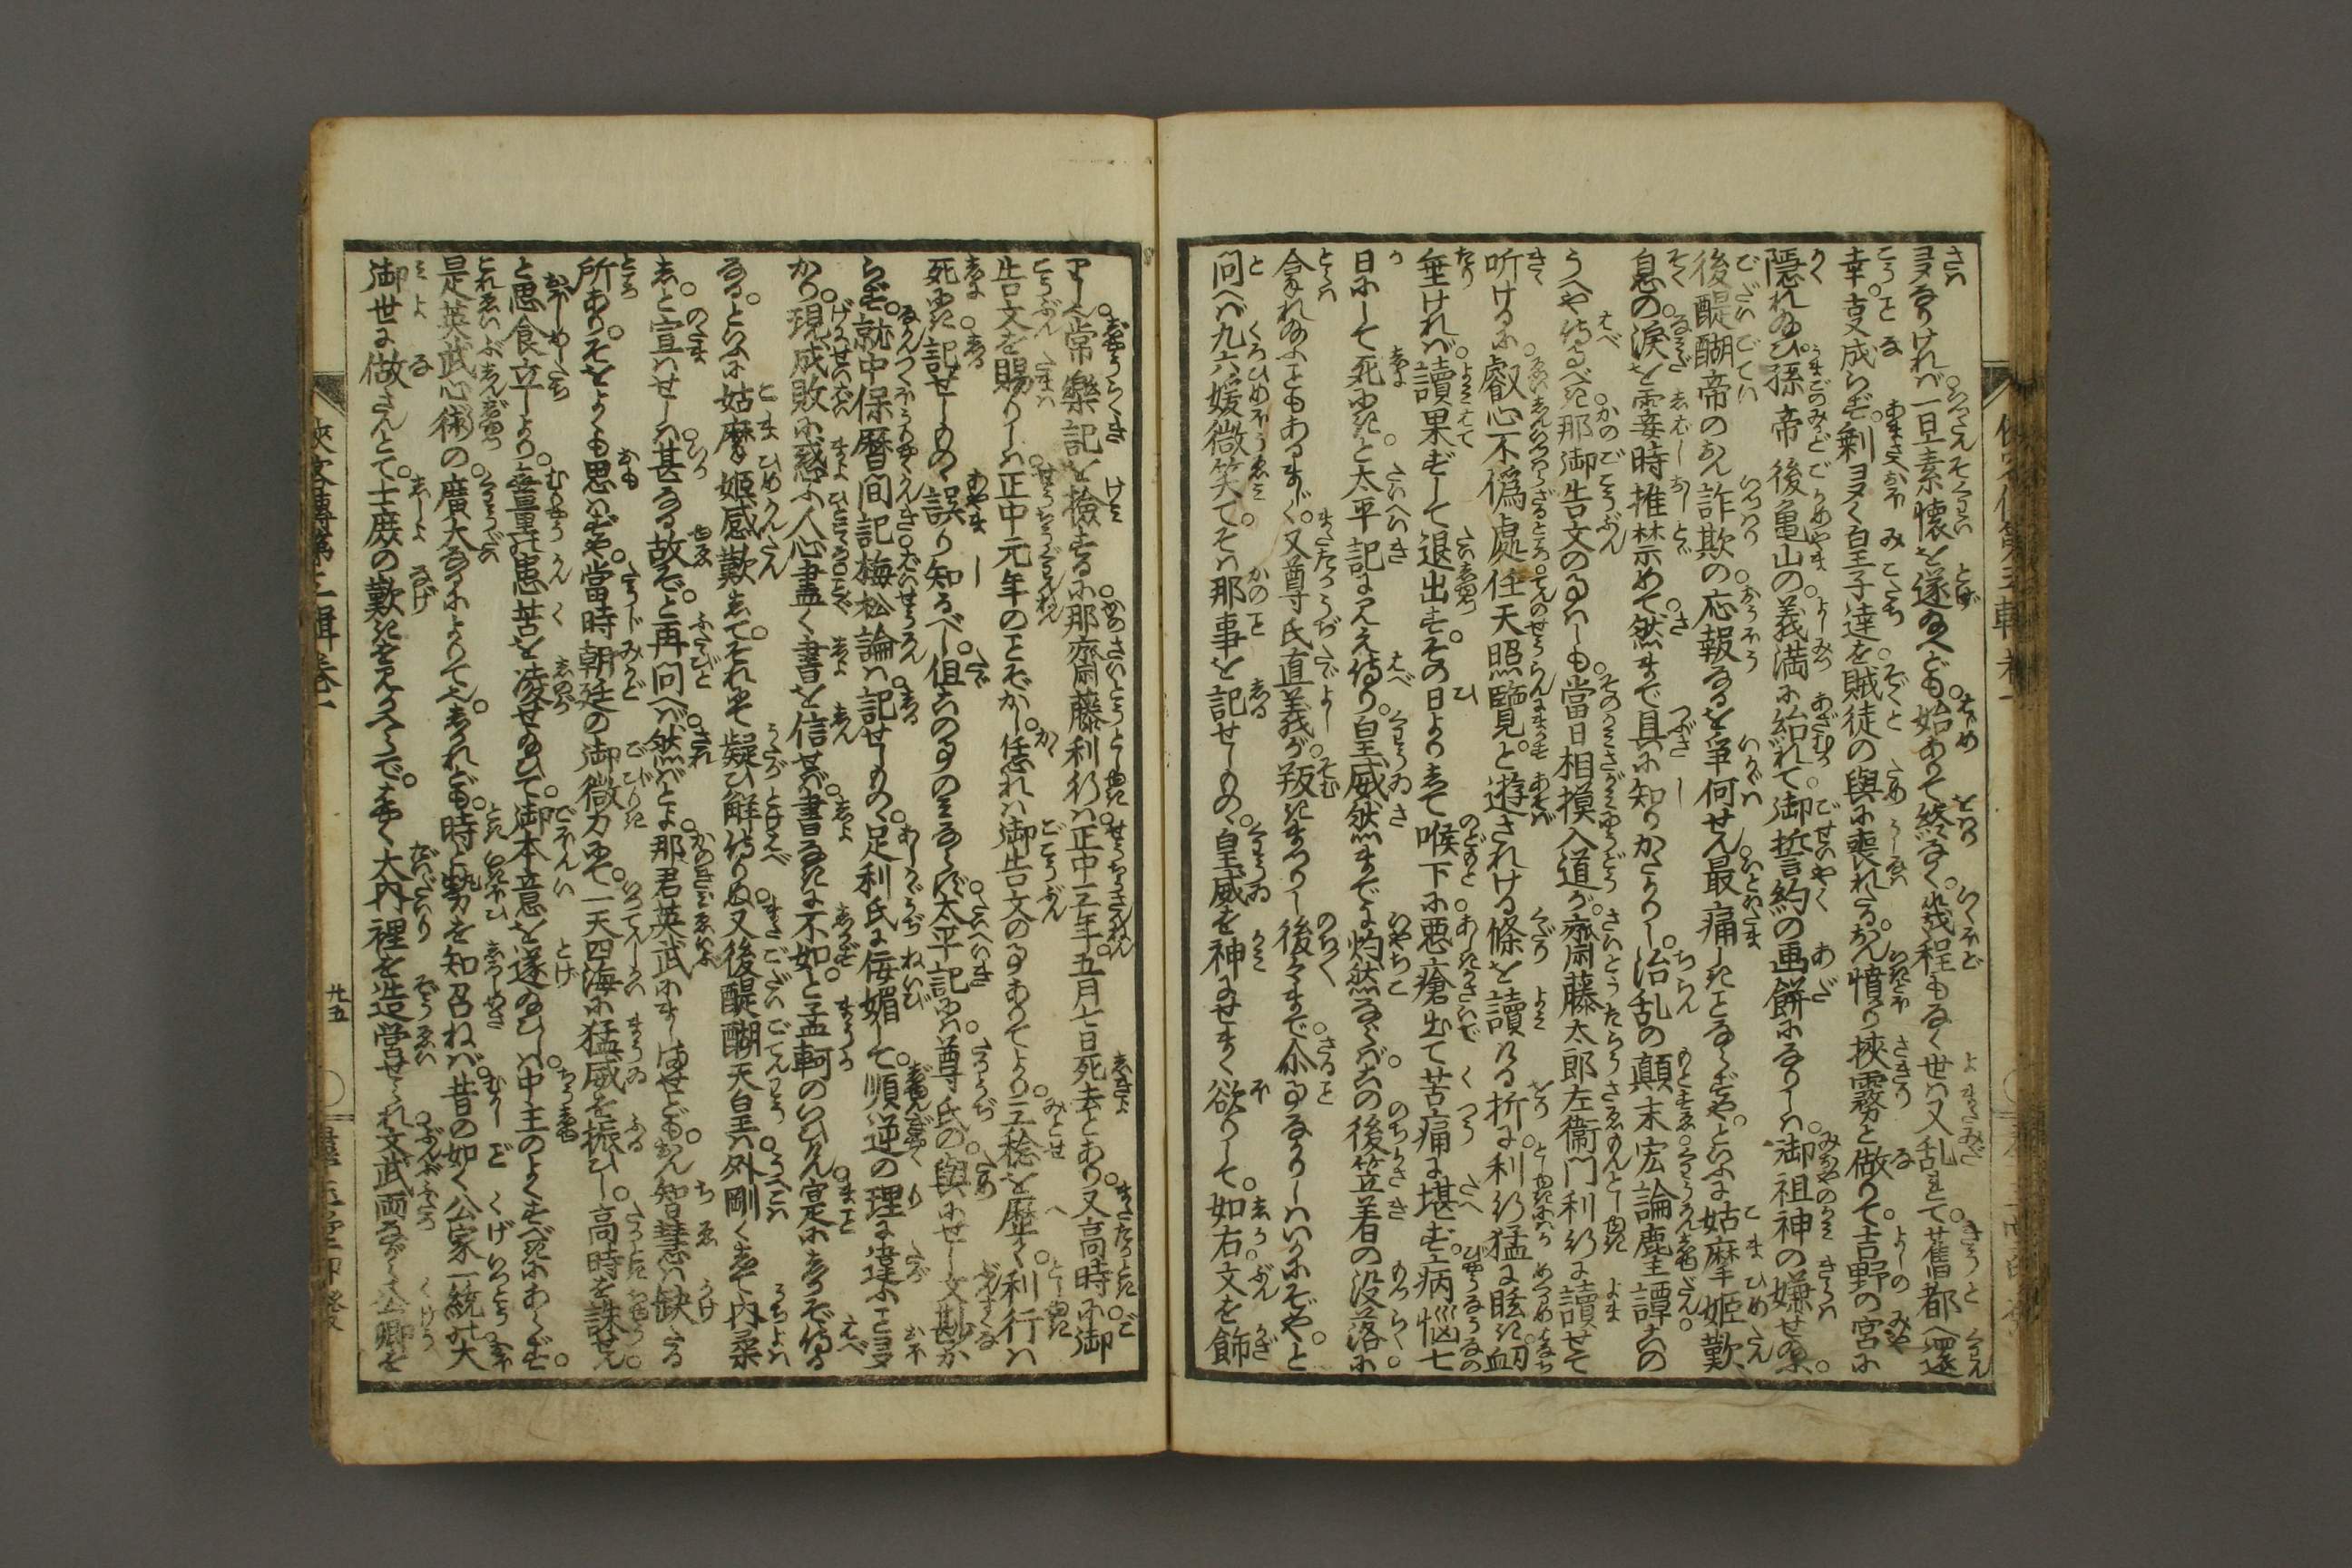 ヨヌなりければ一旦素懐を遂給へども。始ありて終なく。幾程もなく世は又乱れて。舊都へ還
幸。吏成らず。剰ヨヌく皇子達を。賊徒の與に喪れたる。おん憤り挾霧と做りて。吉野の宮に
隠れ給ひ。孫帝後亀山の。義満に紿れて。御誓約の画餅になりしは。御祖神の嫌せ給ふ。
後醍醐帝のおん詐欺の。応報なるを争何せん。最痛しきことならずや。といふに姑摩姫歎
息の。涙を霎時推禁めて。然まで具に知りがたかりし。治乱の顛末。宏論塵譚。その
うへや侍るべき。那御告文のことはしも。當日相摸入道が。齋藤太郎左衛門利行に讀せて
听けるに。叡心不偽處任天照覽と。遊されける條を讀ける折に。利行猛に眩き衂
垂ければ。讀果ずして退出す。その日よりして喉下に。悪瘡出て苦痛に堪ず。病悩七
日にして死にきと。太平記に見え侍り。皇威然までに灼然ならば。その後笠着の没落に
拿れ給ふこともあるまじく。又尊氏直義が。叛きまつりし後々まで。尒ることなかりしはいかにぞや。と
問へば九六媛微笑て。そは那事を記せしものゝ。皇威を神にせまく欲りして。如右文を飾
りし。常樂記を撿するに。那齋藤利行は。正中三年。五月七日死去とあり。又高時に御
告文を賜りしは。正中元年のことぞかし。恁れは御告文のことありてより。三稔を歴て。利行は
死にき。記せしものゝ誤り知るべし。但このことのみならず。太平記には。尊氏の。與にせし文尠か
らず。就中保暦間記。梅松論は。記せしものゝ。足利氏に佞媚して。順逆の理に違ふこと多
かり。現成敗に惑ふ人心。盡く書を信せば。書なきに不如。と孟軻のいひけん。寔にしかぞ侍る
なる。といふに姑摩姫感歎して。それにて疑ひ解侍りぬ。又後醍醐天皇は。外剛くして内柔
し。と宣はせしは。甚なる故ぞ。と再問へば。然ばとよ。那君英武にましませども。おん智慧は缺たる
所あり。そをよくも思はずや。當時朝廷の御微力にて。一天四海に猛威を振ひし。高時を誅せん
と思食立しより。無量の患苦を凌せ給ひて。御本意を遂給ひしは。中主のよくすべきにあらず。
是英武心術の。廣大なるによりて也。しかれども。時と勢を知召ねば。昔の如く公家一統の。大
御世に做さんとて。士庶の歎きを見かへらで。はやく大内裡を造営せられ。文武両ながら公卿を
俠客傳第三輯巻一
廿五